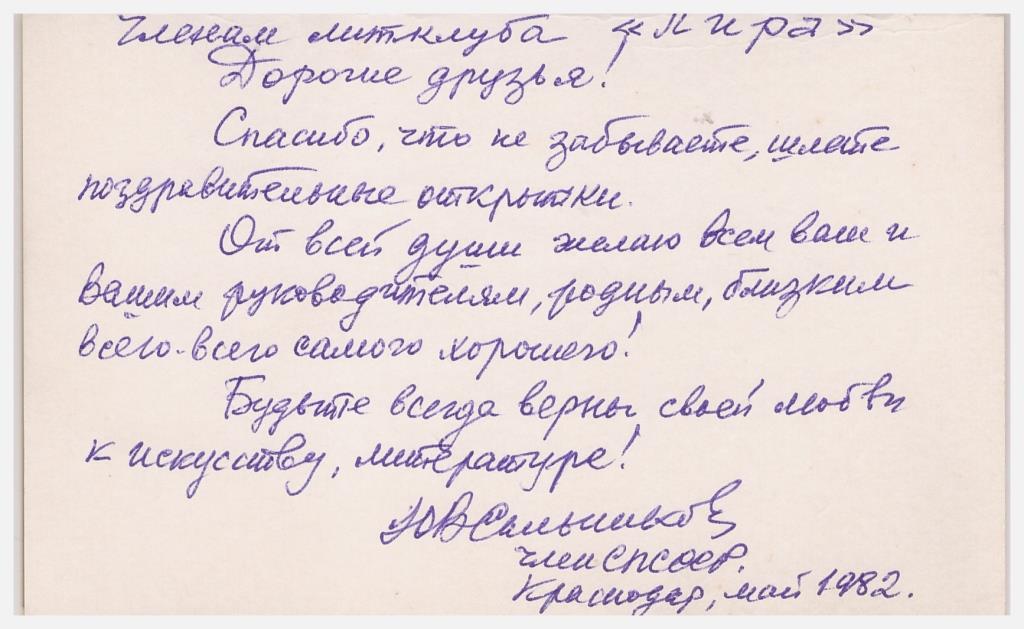 Членам литклуба «Лира»
Дорогие друзья!
Спасибо, что не забываете, шлете
поздравительные открытки.
От всей души желаю всем вам и
вашим руководителям, родным, близким
всего-всего самого хорошего!
Будьте всегда верны своей любви
к искусству, литературе!
ЮВСальников
член СП СССР.
Краснодар, май 1982.